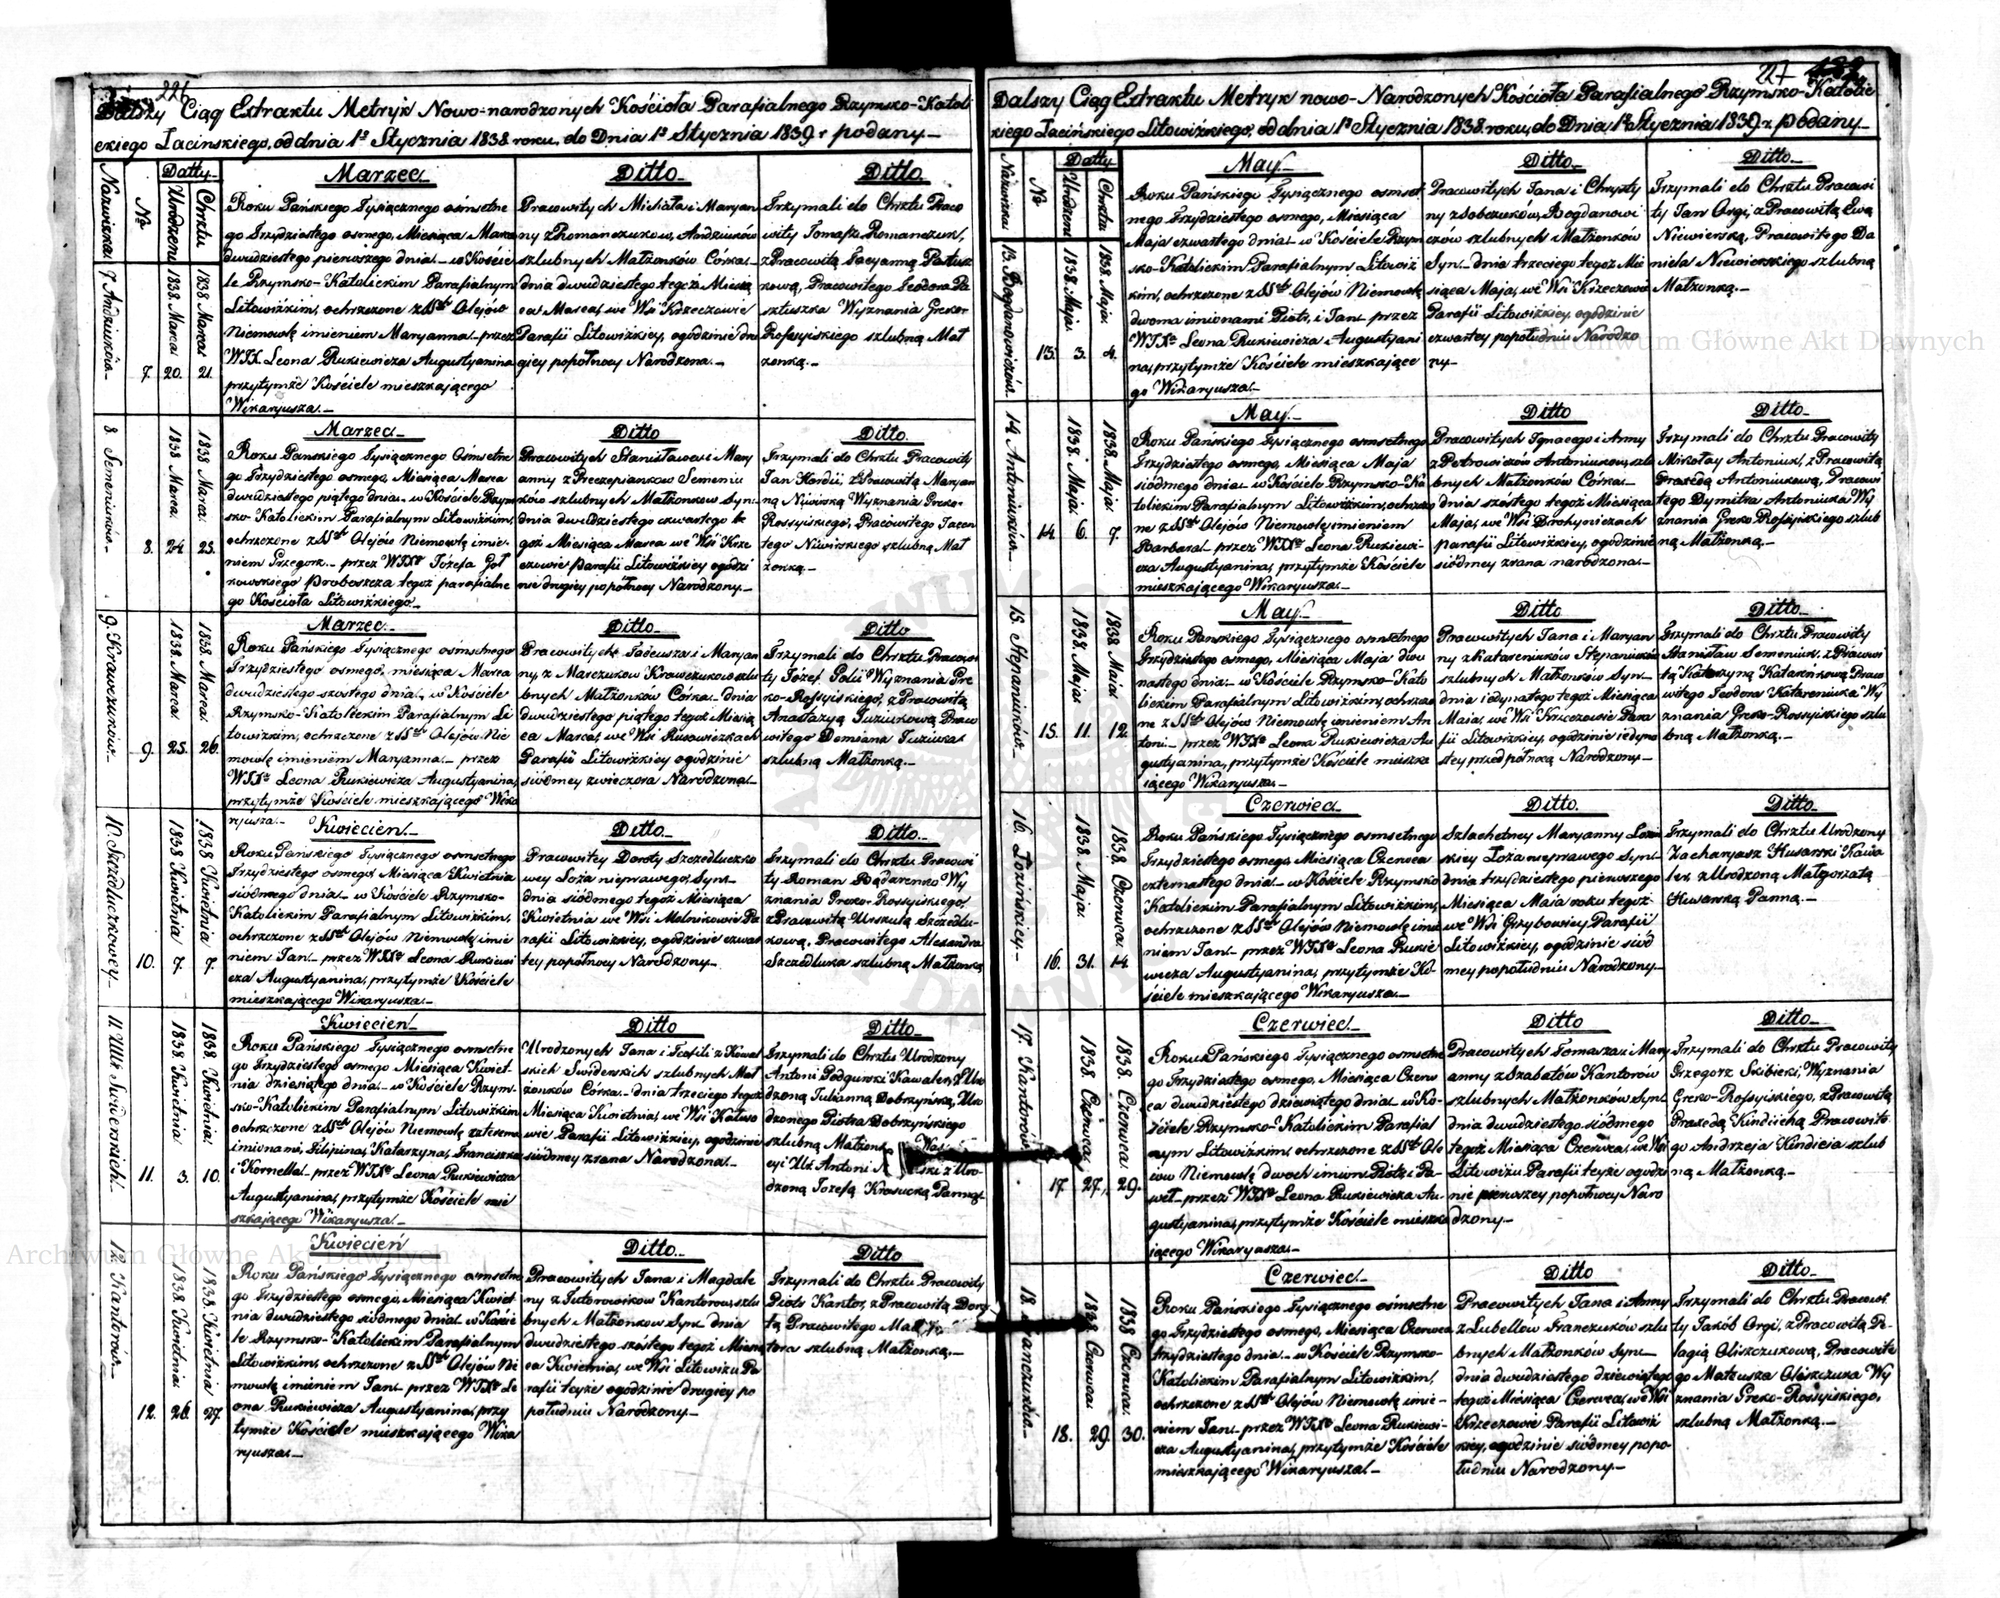 226
Dalszy Ciąg Extraktu Metryk Nowo-narodzonych Kościoła Parafialnego Rzymsko-Katoli
ckiego Łacinskiego, od dnia 1º Stycznia 1838 roku, do Dnia 1º Stycznia 1839 r podany
Nazwiska
№
Datty
Urodzenia
Chrztu
Marzec
Ditto
Ditto
7. Andziuków
7.
1838. Marca
20.
1838. Marca
21.
Roku Pańskiego Tysiącznego ośmsetne
go Trzydziestego osmego, Miesiąca Marca
dwudziestego pierwszego dnia w Koście
le Rzymsko-Katolickim Parafialnym
Litowizkim, ochrzczone z SSch Olejów
Niemowlę imieniem Maryanna przez
WJX Leona Rukiewicza Augustyanina
przytymże Kościele mieszkającego
Wikaryusza.
Pracowitych Michała i Maryan
ny z Romanczukow, Andziuków
szlubnych Małżonków Córka
dnia dwudziestego tegoż Miesią
ca Marca, we Wsi Krzeczewie
Parafii Litowizkiey, ogodzinie dru
giey popołnocy Narodzona.
Trzymali do Chrztu Praco
wity Tomasz Romanczuk,
z Pracowitą Tacyanną Patusz
kową, Pracowitego Teodora Pa
stuszka Wyznania Greko-
Rossyiskiego szlubną Mał
żonką.
8. Semeniuków
8.
1838 Marca
24
1838 Marca
25.
Marzec
Ditto
Ditto
Roku Panskiego Tysiącznego Osmsetne
go Trzydziestego osmego, Miesiąca Marca
dwudziestego piątego dnia w Kościele Rzym
sko-Katolickim Parafialnym Litowizkim,
ochrzczone z SSch Olejów Niemowlę imie
niem Grzegorz przez WJXº Józefa Goł
kowskiego Proboszcza tegoż parafialne
go Kościoła Litowizkiego.
Pracowitych Stanisława i Mary
anny z Przczepianków Semeniu
ków szlubnych Małżonków Syn
dnia dwudziestego czwartego te
goż Miesiąca Marca we Wsi Krze
czowie Parafii Litowizkiey ogodzi
nie drugiey popołnocy Narodzony.
Trzymali do Chrztu Pracowity
Jan Hordii, z Pracowitą Maryan
ną Niwirską Wyznania Greko-
Rossyiskiego, Pracowitego Jacen
tego Niwirskiego szlubną Mał
żonką.
9. Krawczuków
9.
1838 Marca
25.
1838 Marca
26.
Marzec
Ditto
Ditto
Roku Pańskiego Tysiącznego ośmsetnego
Trzydziestego osmego, miesiąca Marca
dwudziestego szóstego dnia, w Kościele
Rzymsko-Katolickim Parafialnym Li
towizkim, ochrzczone z SSch Olejów Nie
mowlę imieniem Maryanna przez
WJXº Leona Rukiewicza Augustyanina,
przytymże Kościele mieszkającego Wika
ryusza.
Pracowitych Tadeusza i Maryan
ny, z Marczuków Krawczukow szlu
bnych Małżonków Córka dnia
dwudziestego piątego tegoż Miesią
ca Marca, we Wsi Rusowiczkach
Parafii Litowizkiey ogodzinie
siódmey zwieczora Narodzona.
Trzymali do Chrztu Pracowi
ty Józef Polii Wyznania Gre
ko-Rossyiskiego, z Pracowitą
Anastazyą Tuziukową Praco
witego Demiana Tuziuka
szlubną Małżonką.
10. Szczedluczkowey
10.
1838 Kwietnia
7.
1838 Kwietnia
7.
Kwiecien
Ditto
Ditto
Roku Pańskiego Tysiącznego osmsetnego
Trzydziestego osmego Miesiąca Kwietnia
siódmego dnia w Kościele Rzymsko-
Katolickim Parafialnym Litowizkim,
ochrzczone z SSch Olejów Niemowlę imie
niem Jan przez WJXº Leona Rukiewi
cza Augustyanina, przytymże Kościele
mieszkającego Wikaryusza.
Pracowitey Doroty Szczedluczko
wey Łoża nieprawego Syn
dnia siódmego tegoż Miesiąca
Kwietnia we Wsi Melnikowie Pa
rafii Litowizkiey, ogodzinie czwar
tey popołnocy Narodzony.
Trzymali do Chrztu Pracowi
ty Roman Bądarenko Wy
znania Greko-Rossyiskiego,
z Pracowitą Urszulą Szczedlu
kową, Pracowitego Alexandra
Szczedluka szlubną Małżonką
11. Ur. Swiderskich
11.
1838. Kwietnia
3.
1838. Kwietnia
10.
Kwiecien
Ditto
Ditto
Roku Pańskiego Tysiącznego osmsetne
go Trzydziestego osmego Miesiąca Kwiet
nia dziesiątego dnia w Kościele Rzym
sko-Katolickim Parafialnym Litowizkim
ochrzczone z SSch Olejów Niemowlę czterema
imionami, Filipina, Katarzyna, Franciszka
i Kornella przez WJXº Leona Rukiewicza
Augustyanina, przytymże Kościele mie
szkającego Wikaryusza.
Urodzonych Jana i Teofili z Kowal
skich Swiderskich szlubnych Mał
żonków Córka dnia trzeciego tegoż
Miesiąca Kwietnia, we Wsi Katuso
wie Parafii Litowizkiey, ogodzinie
siódmey zrana Narodzona.
Trzymali do Chrztu Urodzony
Antoni Podgurski Kawaler, z Uro
dzoną Julianną Dobrzyńską, Uro
dzonego Piotra Dobrzyńskiego
szlubną Małżonk
Ur. Antoni
ski z Uro
dzoną Jozefą Krasucką Panną.
12. Kantorów
12.
1838 Kwietnia
26.
1838 Kwietnia
27.
Kwiecień
Ditto
Ditto
Roku Pańskiego Tysiącznego osmsetne
go Trzydziestego osmego, Miesiąca Kwiet
nia dwudziestego siódmego dnia w Koście
le Rzymsko-Katolickim Parafialnym
Litowizkim, ochrzczone z SSch Olejów Nie
mowlę imieniem Jan przez WJXº Le
ona Rukiewicza Augustyanina, przy
tymże Kościele mieszkającego Wika
ryusza.
Pracowitych Jana i Magdale
ny z Tutorowikow Kantorow, szlu
bnych Małżonkow Syn dnia
dwudziestego szóstego tegoż Miesią
ca Kwietnia, we Wsi Litowizu Pa
rafii teyże ogodzinie drugiey po
południu Narodzony.
Trzymali do Chrztu Pracowity
Piotr Kantor, z Pracowitą Doro
tą Pracowitego
tora szlubną Małżonką.
227
Dalszy Ciąg Extraktu Metryk nowo-Narodzonych Kościoła Parafialnego Rzymsko-Katolic
kiego Łacińskiego Litowizkiego, od dnia 1º Stycznia 1838 roku, do Dnia 1º Stycznia 1839 r podany
Nazwiska
№
Datty
Urodzenia
Chrztu
May
Ditto
Ditto
13. Bogdanowiczów
13.
1838. Maja
3.
1838. Maja
4.
Roku Pańskiego Tysiącznego osmset
nego Trzydziestego osmego, Miesiąca
Maja czwartego dnia w Kościele Rzym
sko-Katolickim Parafialnym Litowiz
kim, ochrzczone z SSch Olejów Niemowlę
dwoma imionami Piotr, i Jan przez
WJXª Leona Rukiewicza Augustyani
na, przytymże Kościele mieszkające
go Wikaryusza.
Pracowitych Jana i Chryzty
ny z Sobczuków, Bogdanowi
czów szlubnych Małżonków
Syn dnia trzeciego tegoż Mie
siąca Maja, we Wsi Krzeczowie
Parafii Litowizkiey, ogodzinie
czwartey popołudniu Narodzo
ny.
Trzymali do Chrztu Pracowi
ty Jan Orgi, z Pracowitą Ewą
Niewierską, Pracowitego Da
niela Niewierskiego szlubną
Małżonką.
14. Antoniuków
14.
1838. Maja
6.
1838. Maja
7.
May
Ditto
Ditto
Roku Pańskiego Tysiącznego osmsetnego
Trzydziestego osmego, Miesiąca Maja
siódmego dnia w Kościele Rzymsko-Ka
tolickim Parafialnym Litowizkim, ochrzczo
ne z SSch Olejów Niemowlę imieniem
Barbara przez WJXº Leona Rukiewi
cza Augustyanina, przytymże Kościele
mieszkającego Wikaryusza.
Pracowitych Ignacego i Anny
z Petrowiczów Antoniukow, szlu
bnych Małżonków Córka
dnia szóstego tegoż Miesiąca
Maja, we Wsi Drohyniczach
parafii Litowizkiey, ogodzinie
siódmey zrana narodzona.
Trzymali do Chrztu Pracowity
Mikołay Antoniuk, z Pracowitą
Praxedą Antoniukową, Pracowi
tego Dymitra Antoniuka Wy
znania Greko-Rossyiskiego szlub
ną Małżonką.
15. Stepaniuków
15.
1838. Maja
11.
1838 Maia
12.
May
Ditto
Ditto
Roku Panskiego Tysiącznego osmsetnego
Trzydziestego osmego, Miesiąca Maja dwu
nastego dnia w Kościele Rzymsko-Kato
lickim Parafialnym Litowizkim, ochrzczo
ne z SSch Olejów Niemowlę imieniem An
toni przez WJXº Leona Rukiewicza Au
gustyanina, przytymże Kościele mieszka
iącego Wikaryusza.
Pracowitych Jana i Maryan
ny z Katareniuków Stepaniuków
szlubnych Małżonków Syn
dnia iedynastego tegoż Miesiąca
Maia, we Wsi Krzeczowie Para
fii Litowizkiey, ogodzinie iedyna
stey przed północą Narodzony.
Trzymali do Chrztu Pracowity
Stanisław Semeniuk, z Pracowi
tą Katarzyną Katareńkową Praco
witego Teodora Katareniuka Wy
znania Greko-Rossyiskiego szlu
bną Małżonką.
16. Łozińskiey
16.
1838. Maja
31.
1838. Czerwca
14.
Czerwiec
Ditto
Ditto
Roku Pańskiego Tysiącznego osmsetnego
Trzydziestego osmego, Miesiąca Czerwca
czternastego dnia w Kościele Rzymsko
Katolickim Parafialnym Litowizkim,
ochrzczone z SSch Olejów Niemowlę imie
niem Jan przez WJXº Leona Rukie
wicza Augustyanina, przytymże Ko-
ściele mieszkającego Wikaryusza.
Szlachetney Maryanny Łozin
skiey Łoża nieprawego Syn
dnia trzydziestego pierwszego
Miesiąca Maia roku tegoż
we Wsi Grzybowicy Parafii
Litowizkiey, ogodzinie siód
mey popołudniu Narodzony.
Trzymali do Chrztu Urodzony
Zacharyasz Husarski Kawa
ler, z Urodzoną Małgorzatą
Husarską Panną.
17. Kantorów
17.
1838. Czerwca
27.
1838. Czerwca
29.
Czerwiec
Ditto
Ditto
Roku Pańskiego Tysiącznego osmsetne
go Trzydziestego osmego, Miesiąca Czerw
ca dwudziestego dziewiątego dnia w Ko-
ściele Rzymsko-Katolickim Parafial
nym Litowizkim, ochrzczone z SSch Ole
iów Niemowlę dwoch imion Piotr i Pa
weł przez WJXº Leona Rukiewicza Au
gustyanina, przytymże Kościele mieszka
iącego Wikaryusza.
Pracowitych Tomasza i Mary
anny z Szabatów Kantorów
szlubnych Małżonków Syn
dnia dwudziestego siódmego
tegoż Miesiąca Czerwca, we Wsi
Litowizu Parafii teyże ogodzi
nie pierwszey popołnocy Naro
dzony.
Trzymali do Chrztu Pracowity
Grzegorz Skibicki, Wyznania
Greko-Rossyiskiego, z Pracowitą
Praxedą Kindicichą Pracowite
go Andrzeja Kindicia szlub
ną Małżonką.
18. Franczuków
18.
1838 Czerwca
29.
1838 Czerwca
30.
Czerwiec
Ditto
Ditto
Roku Pańskiego Tysiącznego ośmsetne
go Trzydziestego osmego, Miesiąca Czerwca
trzydziestego dnia w Kościele Rzymsko-
Katolickim Parafialnym Litowizkim,
ochrzczone z SSch Olejów Niemowlę imie-
niem Jan przez WJXº Leona Rukiewi-
cza Augustyanina, przytymże Kościele
mieszkającego Wikaryusza
Pracowitych Jana i Anny
z Lubellów Franczuków szlu
bnych Małżonków Syn
dnia dwudziestego dziewiątego
tegoż Miesiąca Czerwca, we Wsi
Krzeczowie Parafii Litowiz
kiey, ogodzinie siódmey popo
łudniu Narodzony.
Trzymali do Chrztu Pracowi
ty Jakób Orgi, z Pracowitą Pe
lagią Oliszczukową, Pracowite
go Mateusza Oliszczuka Wy
znania Greko-Rossyiskiego,
szlubną Małżonką.
Archiwum Główne Akt Dawnych
Archiwum Główne Akt Dawnych